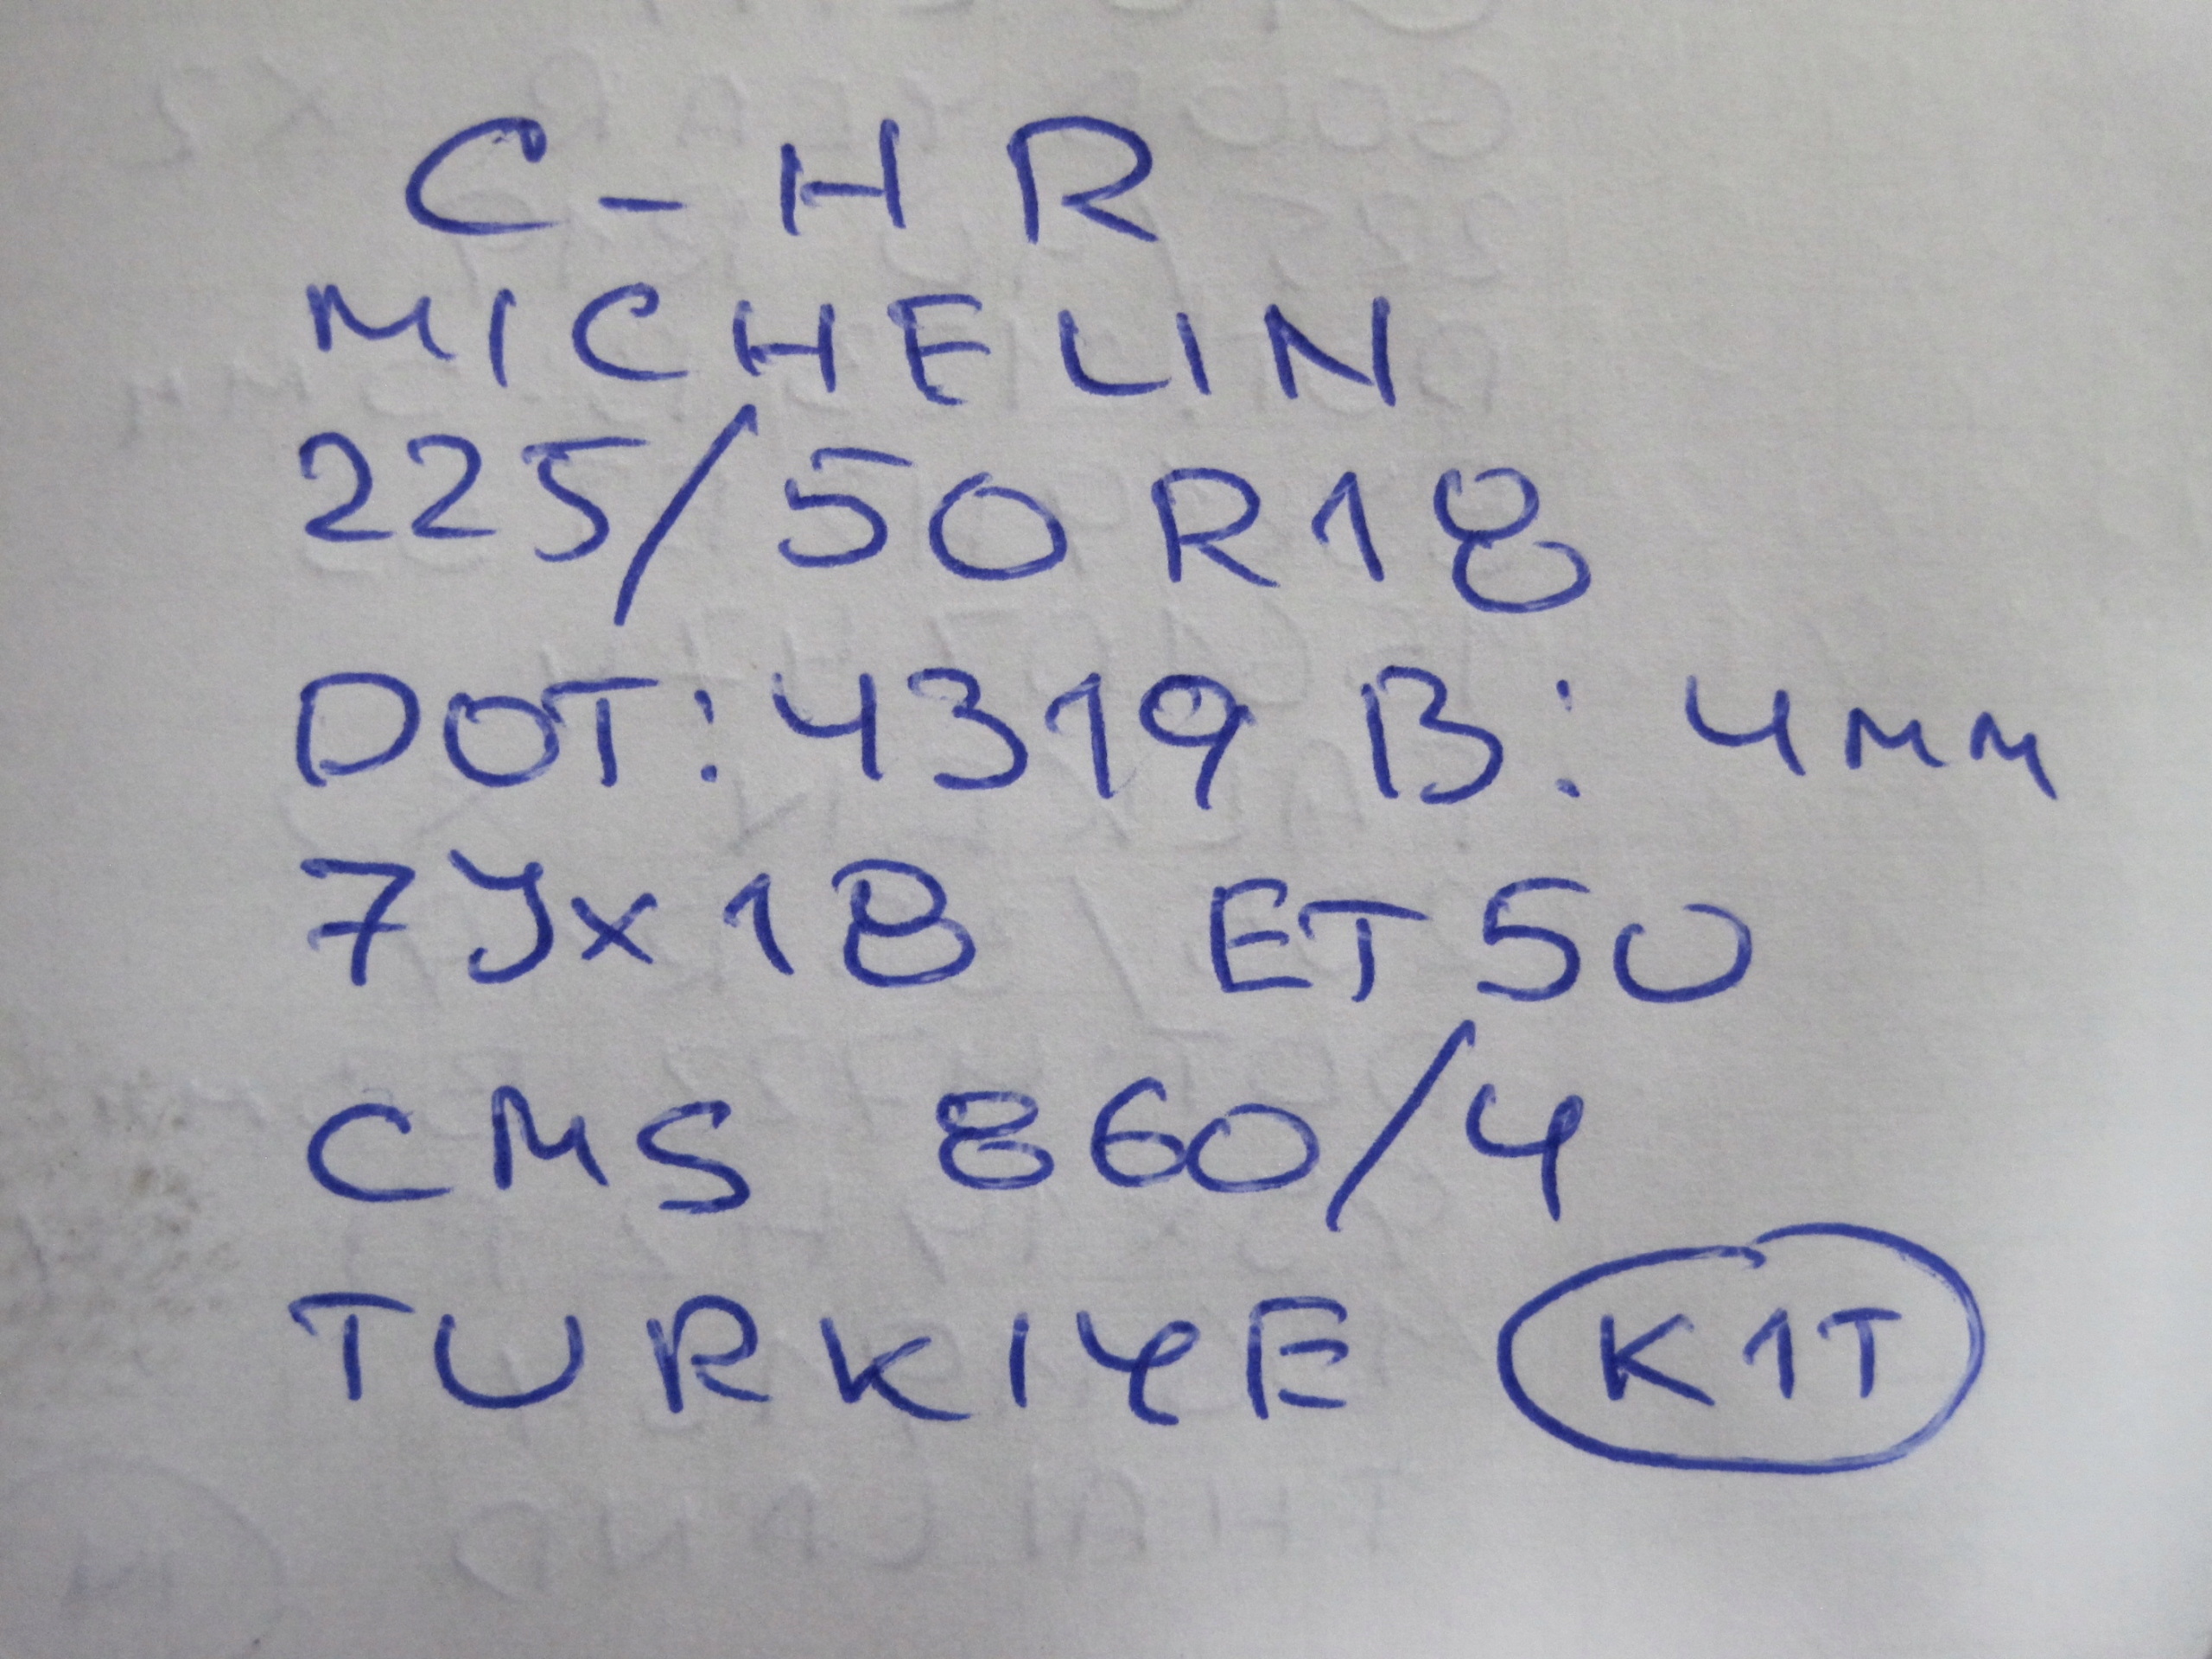 C-HR
MICHELIN
225/50 R18
DOT: 4319 B: 4mm
7Jx18 ET50
CMS 860/4
TURKIYE K1T